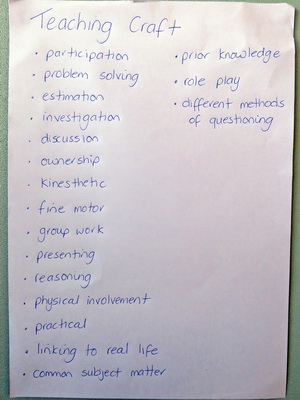 Teaching Craft
• participation
• problem solving
• estimation
• investigation
• discussion
• ownership
• kinesthetic
• fine motor
• group work
• presenting
• reasoning
• physical involvement
• practical
• linking to real life
• common subject matter
• prior knowledge
• role play
• different methods
of questioning